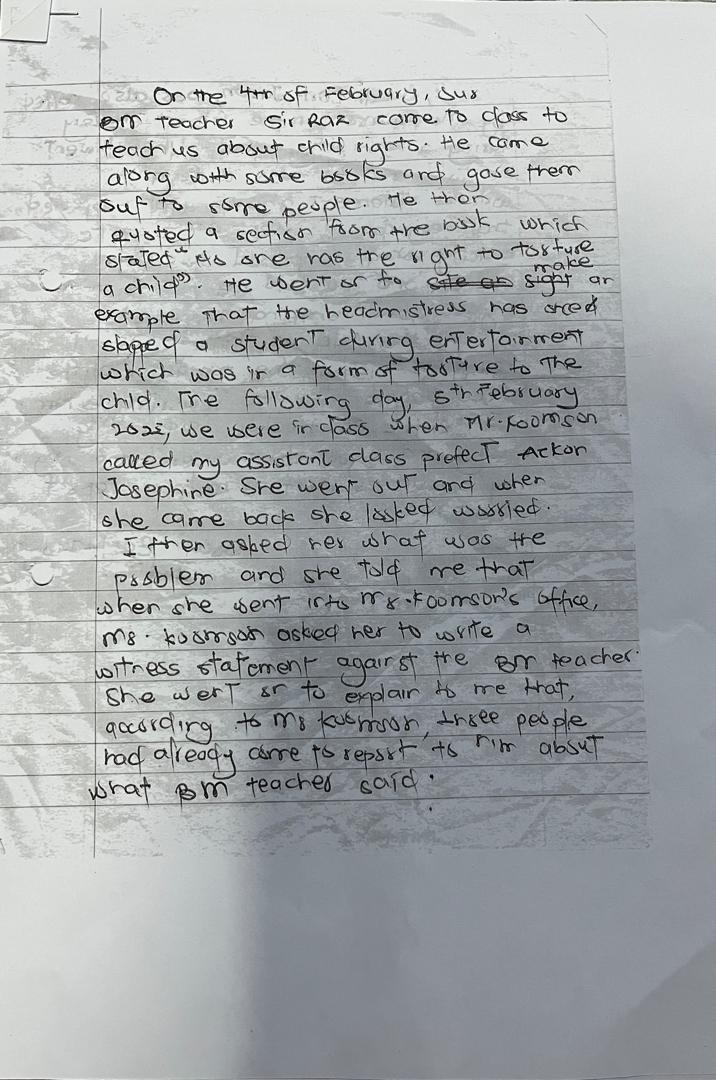 On the 4th of February, our
BM teacher Sir Raz came to class to
teach us about child rights. He came
along with some books and gave them
out to some people. He then
quoted a section from the book which
stated "No one has the right to torture
a child". He went on to make an
example that the headmistress has once
slapped a student during entertainment
which was in a form of torture to the
child. The following day, 5th February
2025, we were in class when Mr. Koomson
called my assistant class prefect Ackon
Josephine. She went out and when
she came back she looked worried.
I then asked her what was the
problem and she told me that
when she went into Mr. Koomson's office,
Mr. Koomson asked her to write a
witness statement against the BM teacher.
She went on to explain to me that,
according to Mr Koomson, three people
had already come to report to him about
what BM teacher said.